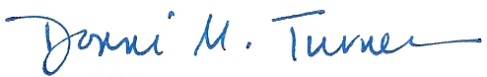 Donni M. Turner